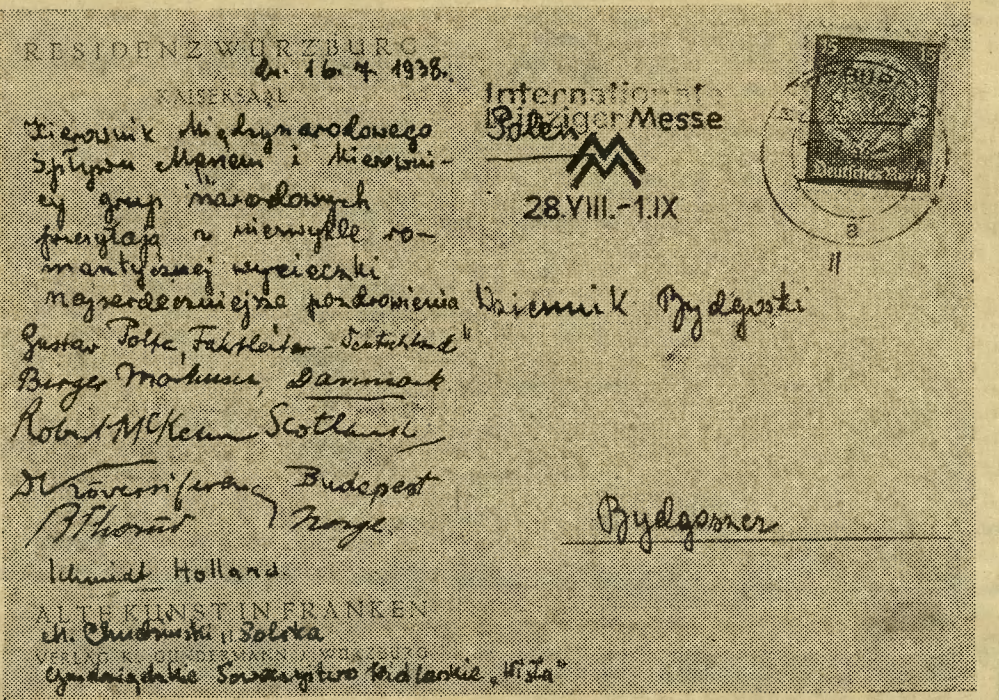 RESIDENZ WÜRZBURG
dn. 16. 7. 1938.
KAISERSAAL
Kierownik Międzynarodowego
Spływu Menem i kierowni-
cy grup narodowych
przesyłają z niezwykle ro-
mantycznej wycieczki
najserdeczniejsze pozdrowienia
Gustav Fahrtleiter - Deutschland
Birger Danmark
Robert Scotland
Dr Budapest
Norge.
Schmidt Holland.
ALTE KUNST IN FRANKEN
M. Polska
VERLAG K. GUNDERMANN / WÜRZBURG
Grudziądzkie Towarzystwo „Wisła"
Internationale
Leipziger Messe
Polen
28.VIII.-1.IX
15 15
Deutsches Reich
a
Dziennik Bydgoski
Bydgoszcz